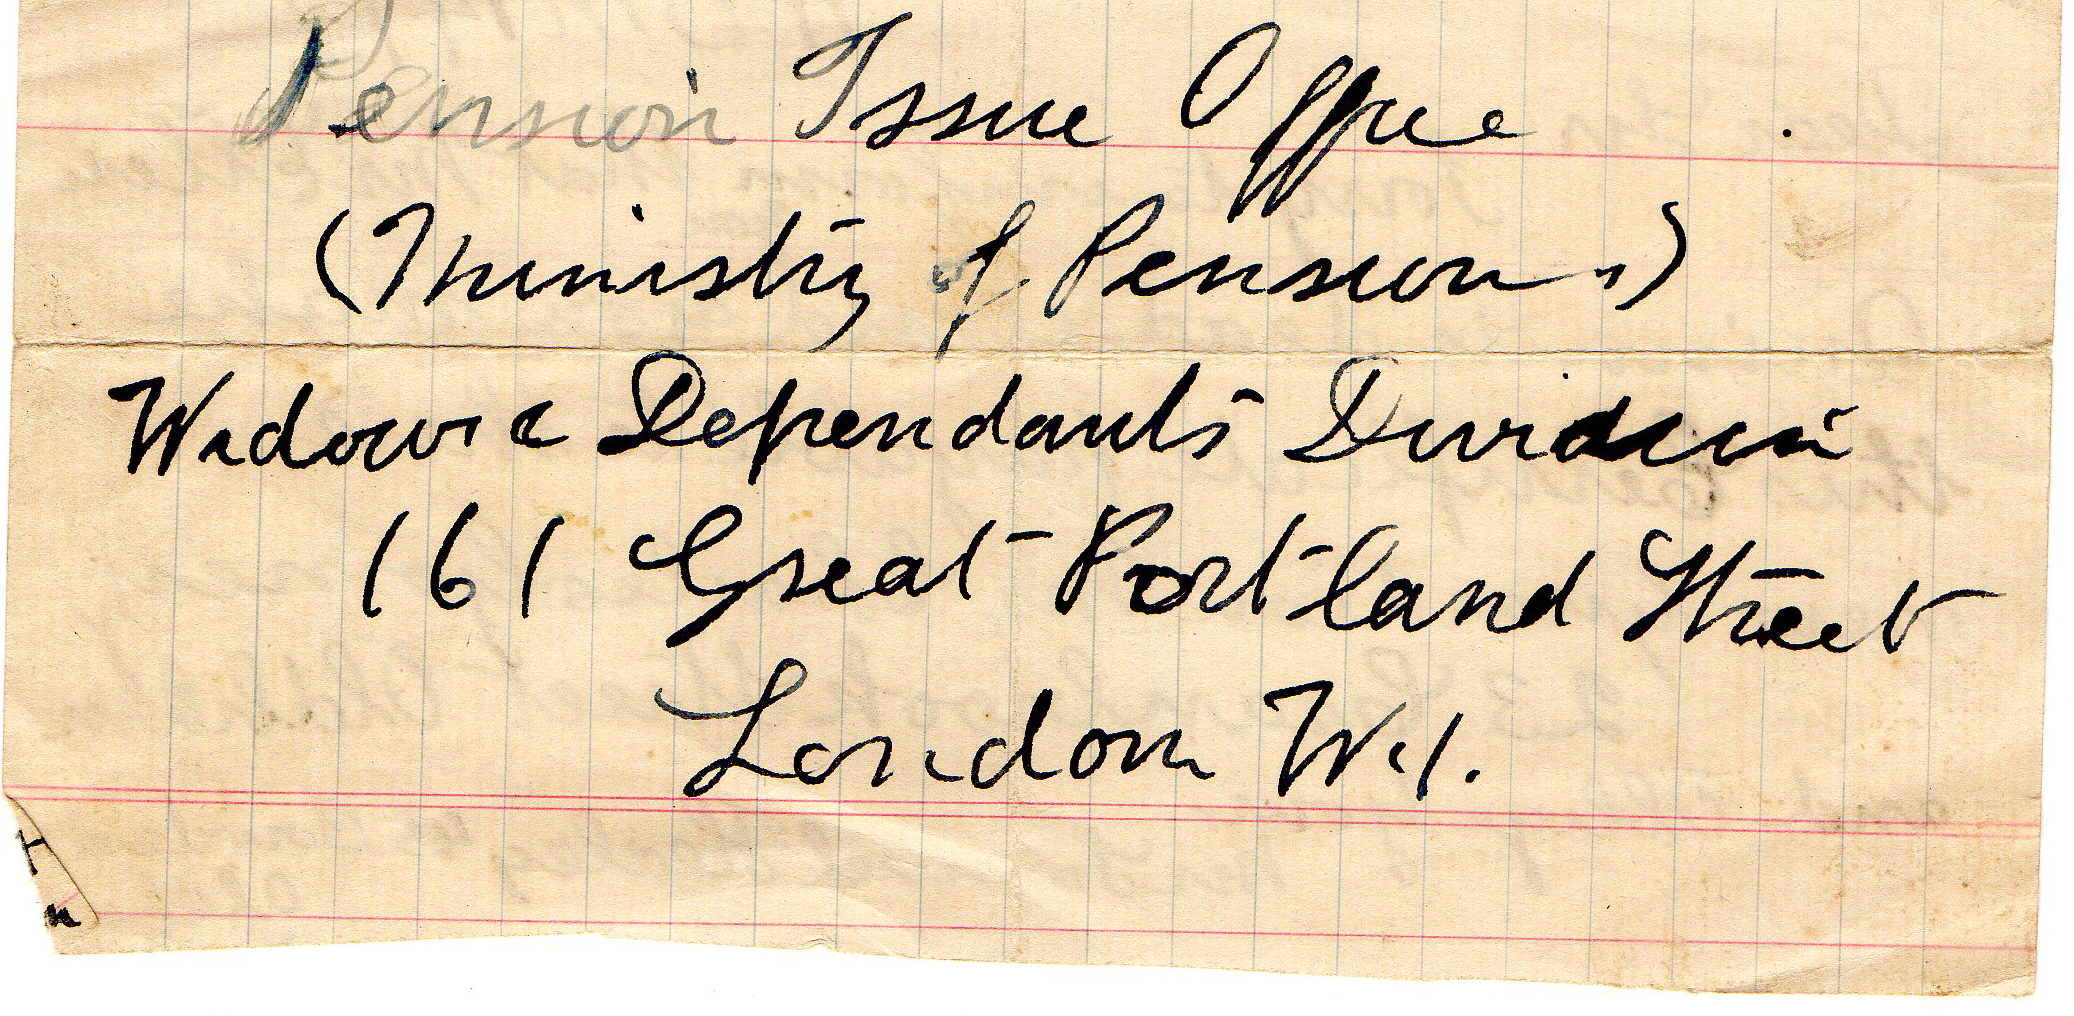 Pension Issue Office
(Ministry of Pensions)
Widows & Dependants Division
161 Great Portland Street
London W.1.